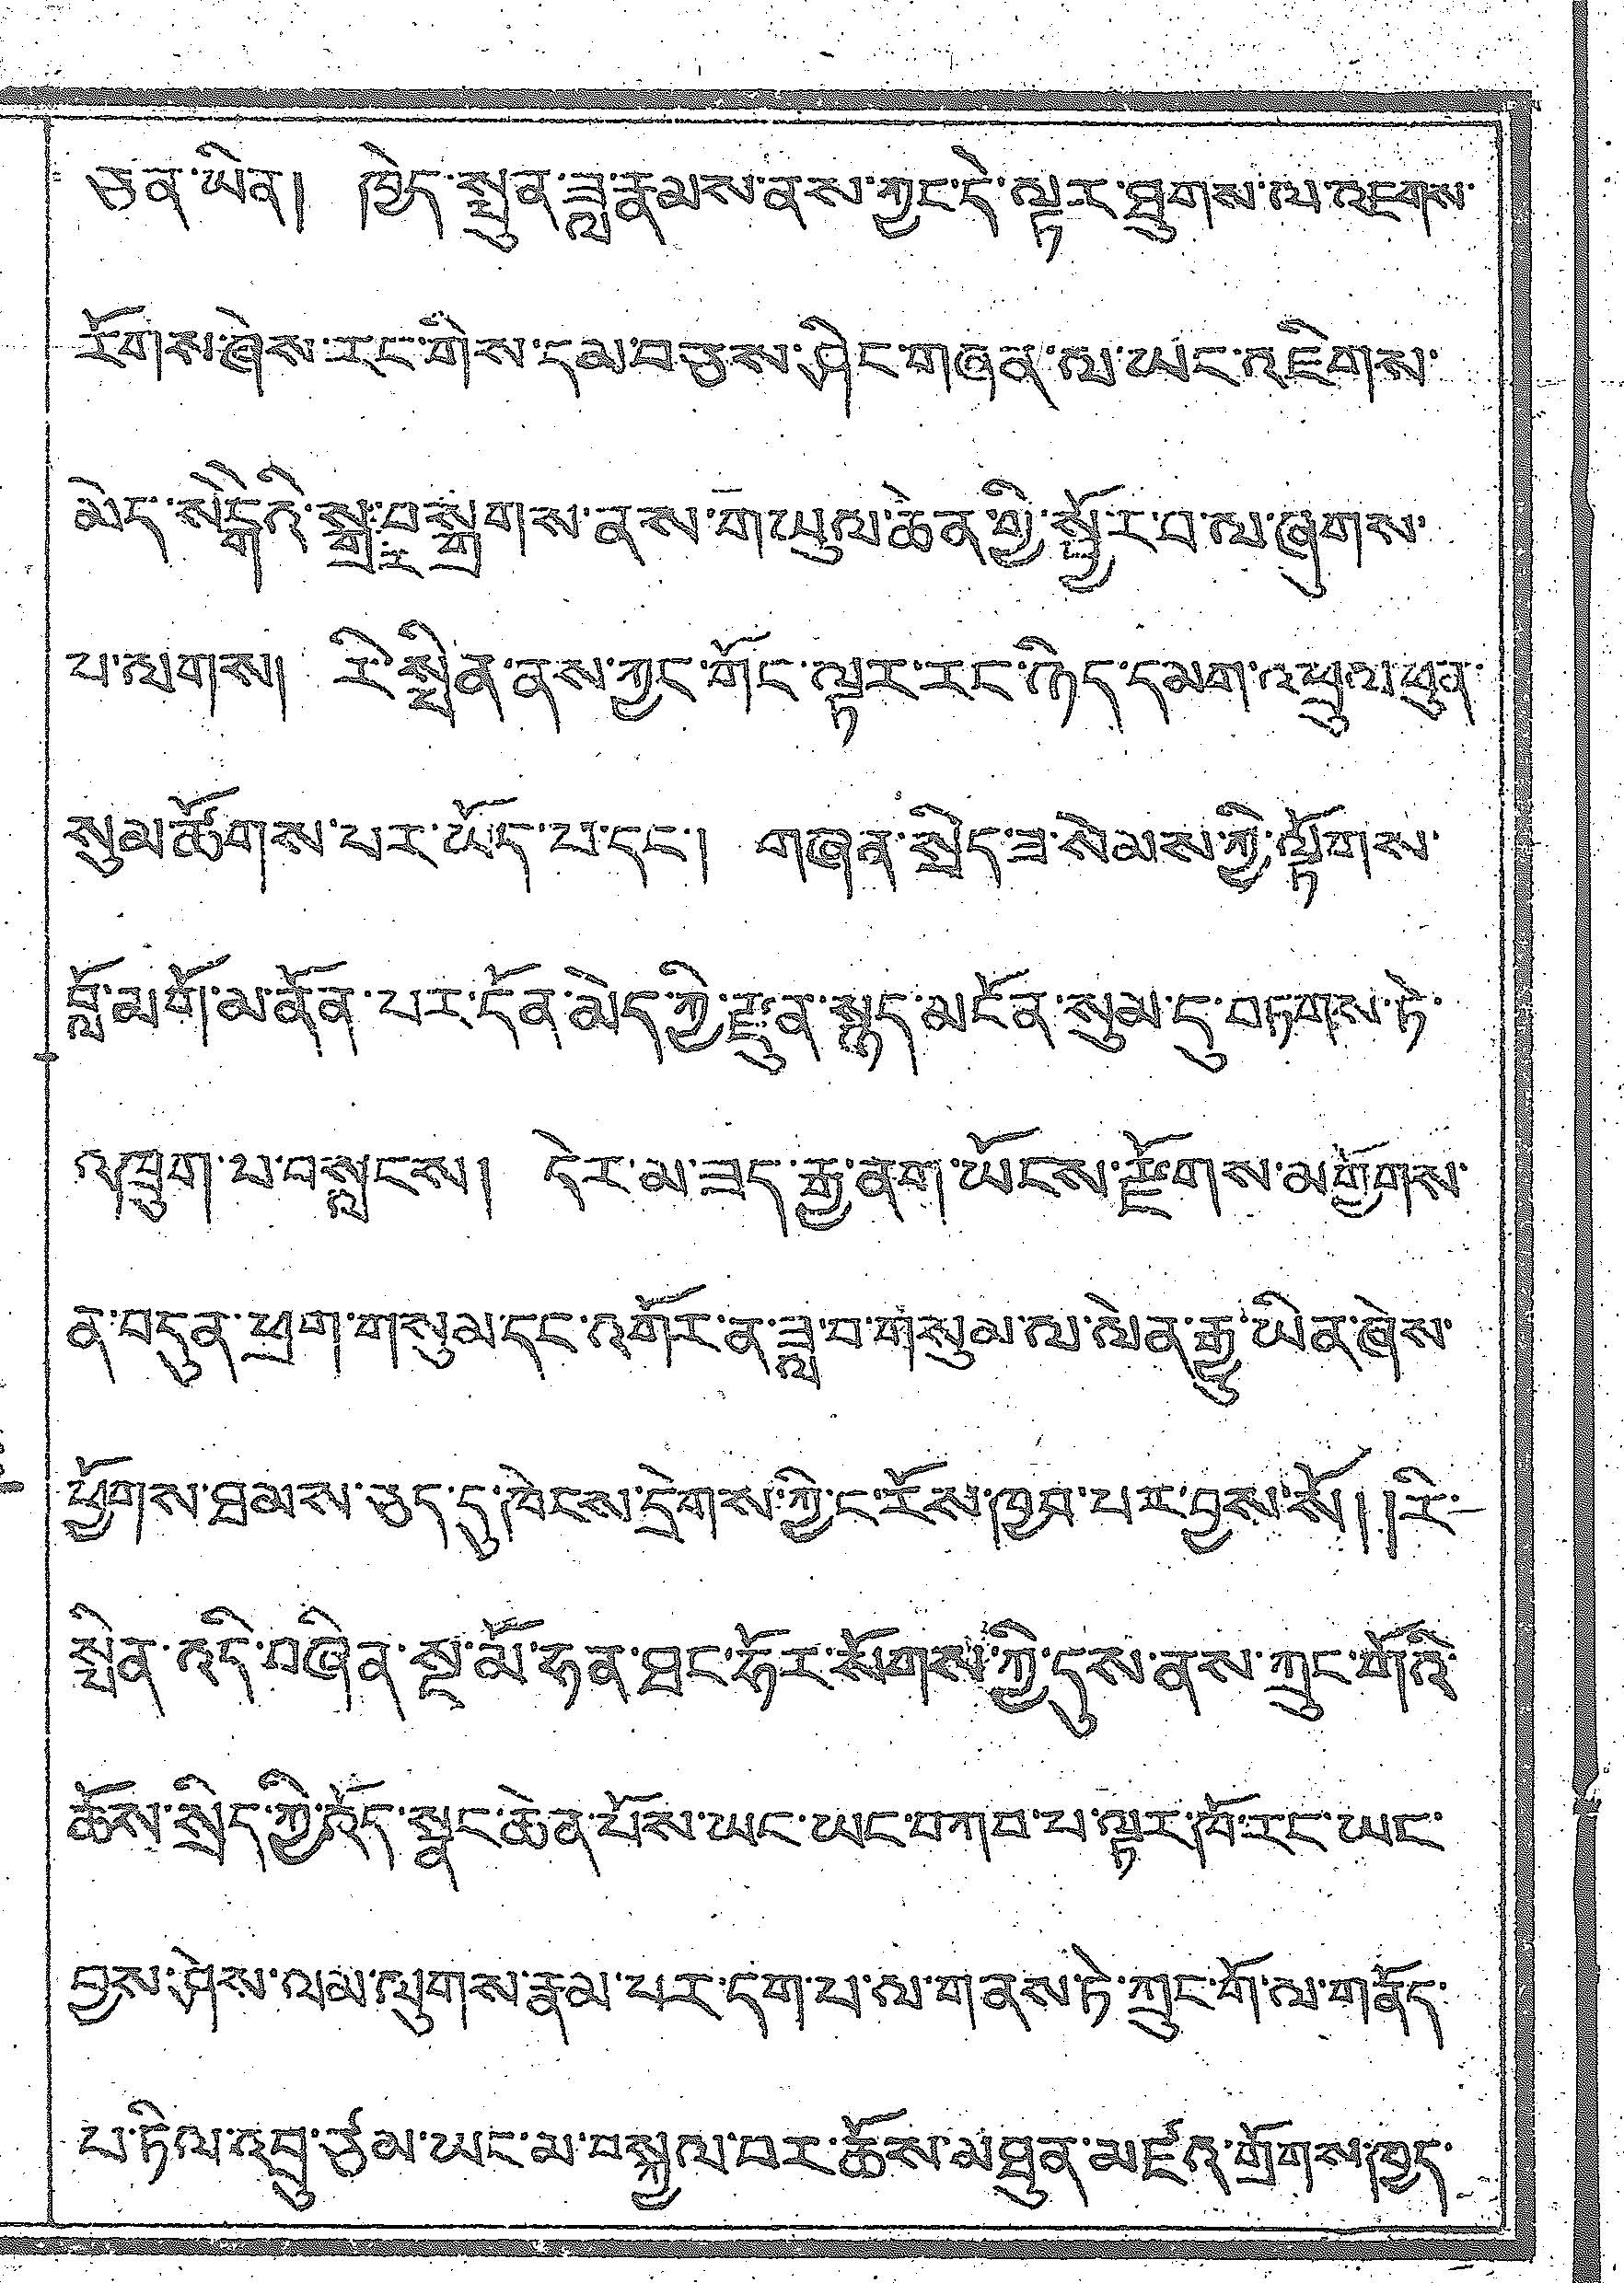 ཅན་ཡིན། ཁྱེད་སྤུན་ཟླ་རྣམས་ནས་ཀྱང་དེ་ལྟར་ཐུགས་ལ་འཇགས་
རོགས་ཞེས་རང་གིས་དམ་བཅས་ཤིང་གཞན་ལ་ཡང་འཇིགས་
མེད་སེངྒེའི་སྒྲ་བསྒྲགས་ནས་གཡུལ་ཆེན་གྱི་སྦྱོར་བ་ལ་ཞུགས་
པ་ལགས། རི་སྤྲིན་ནས་ཀྱང་གོང་ལྟར་རང་ཉིད་དམག་འཕྲུལ་ཕུན་
སུམ་ཚོགས་པར་ཡོད་པ་དང་། གཞན་སྤྲེད་ཟ་སེམས་ཀྱི་ལྟོགས་
བློ་མགོ་མ་ནོན་པར་དོན་མེད་ཀྱི་རྫུན་སྟད་མངོན་སུམ་དུ་བཏགས་ཏེ་
འཁྲུག་པ་བསླངས། དེར་མ་ཟད་རྒྱ་ནག་ཡོངས་རྫོགས་མགྱོགས་
ན་བདུན་ཕྲག་གསུམ་དང་འགོར་ན་ཟླ་བ་གསུམ་ལ་ལེན་རྒྱུ་ཡིན་ཞེས་
ཕྱོགས་ཐམས་ཅད་དུ་ཁེངས་དྲེགས་ཀྱི་ང་རོས་ཁྱབ་པར་བྱས་སོ། །རི་
སྤིན་འདི་བཞིན་སྔ་མོ་ཧན་ཐང་ཧོར་སོགས་ཀྱི་དུས་ནས་ཀྲུང་གོའི་
ཆོས་སྲིད་ཀྱི་འོད་སྣང་ཆེན་པོས་ཡང་ཡང་བཀབ་པ་ལྟར་ཁོ་རང་ཡང་
བྱས་ཤེས་ལམ་ལུགས་རྣམ་པར་དག་པ་ལ་གནས་ཏེ་ཀྲུང་གོ་ལ་གནོད་
པ་ཏིལ་འབྲུ་ཙམ་ཡང་མ་བསྐྱལ་བར་ཆོས་མཐུན་མཛའ་གྲོགས་ཁྱད་